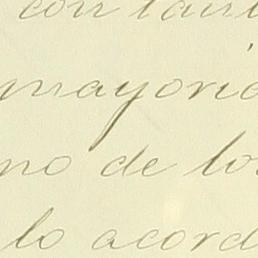 con tant
mayoria
no de los
lo acord